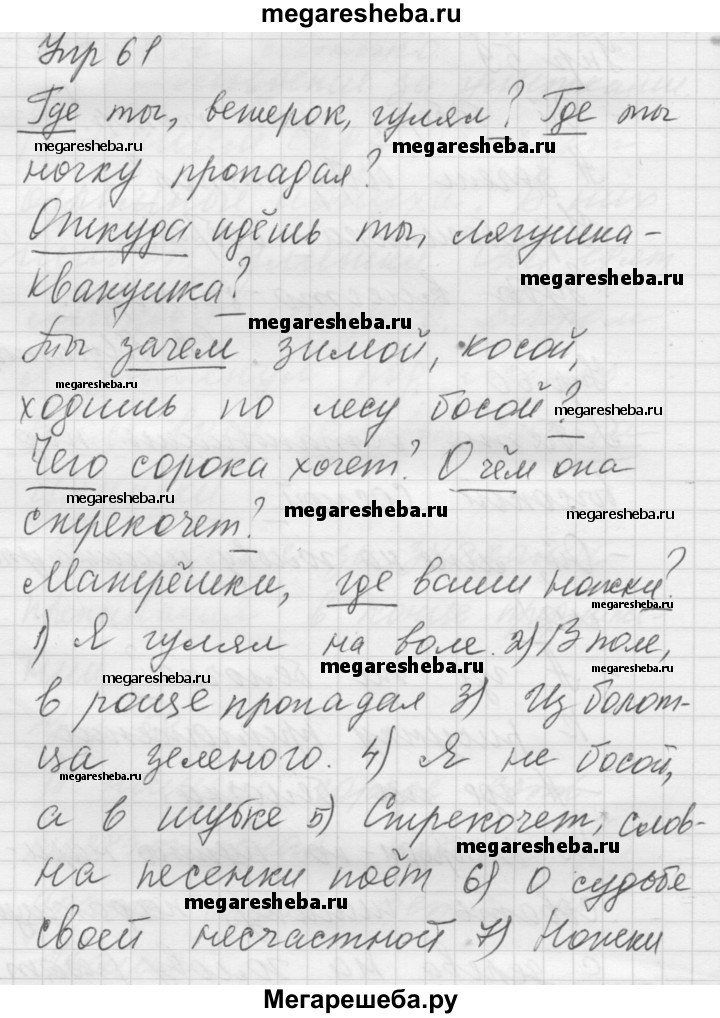 megaresheba.ru
Упр 61
Где ты, ветерок, гулял? Где ты
megaresheba.ru
megaresheba.ru
ночку пропадал?
Откуда идёшь ты, лягушка-
megaresheba.ru
квакушка?
megaresheba.ru
Ты зачем зимой, косой,
megaresheba.ru
ходишь по лесу босой?
megaresheba.ru
Чего сорока хочет? О чём она
megaresheba.ru
megaresheba.ru
megaresheba.ru
стрекочет?
Матрёшки, где ваши ножки?
megaresheba.ru
1) Я гулял на воле. 2) В поле,
megaresheba.ru
megaresheba.ru
в роще пропадал 3) Из болот-
ца зеленого. 4) Я не босой,
megaresheba.ru
а в шубке 5) Стрекочет, слов-
megaresheba.ru
на песенки поёт 6) О судьбе
megaresheba.ru
своей несчастной 7) Ножки
Мегарешеба.ру